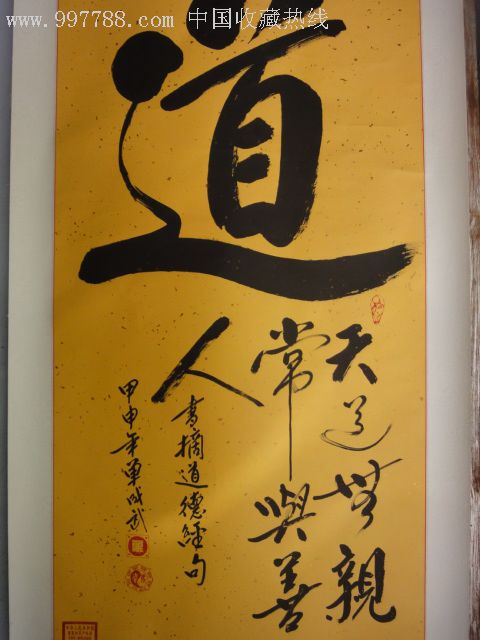 www.997788.com 中国收藏热线
道
天道無親
常與善
人
書摘道德經句
甲申年單成武